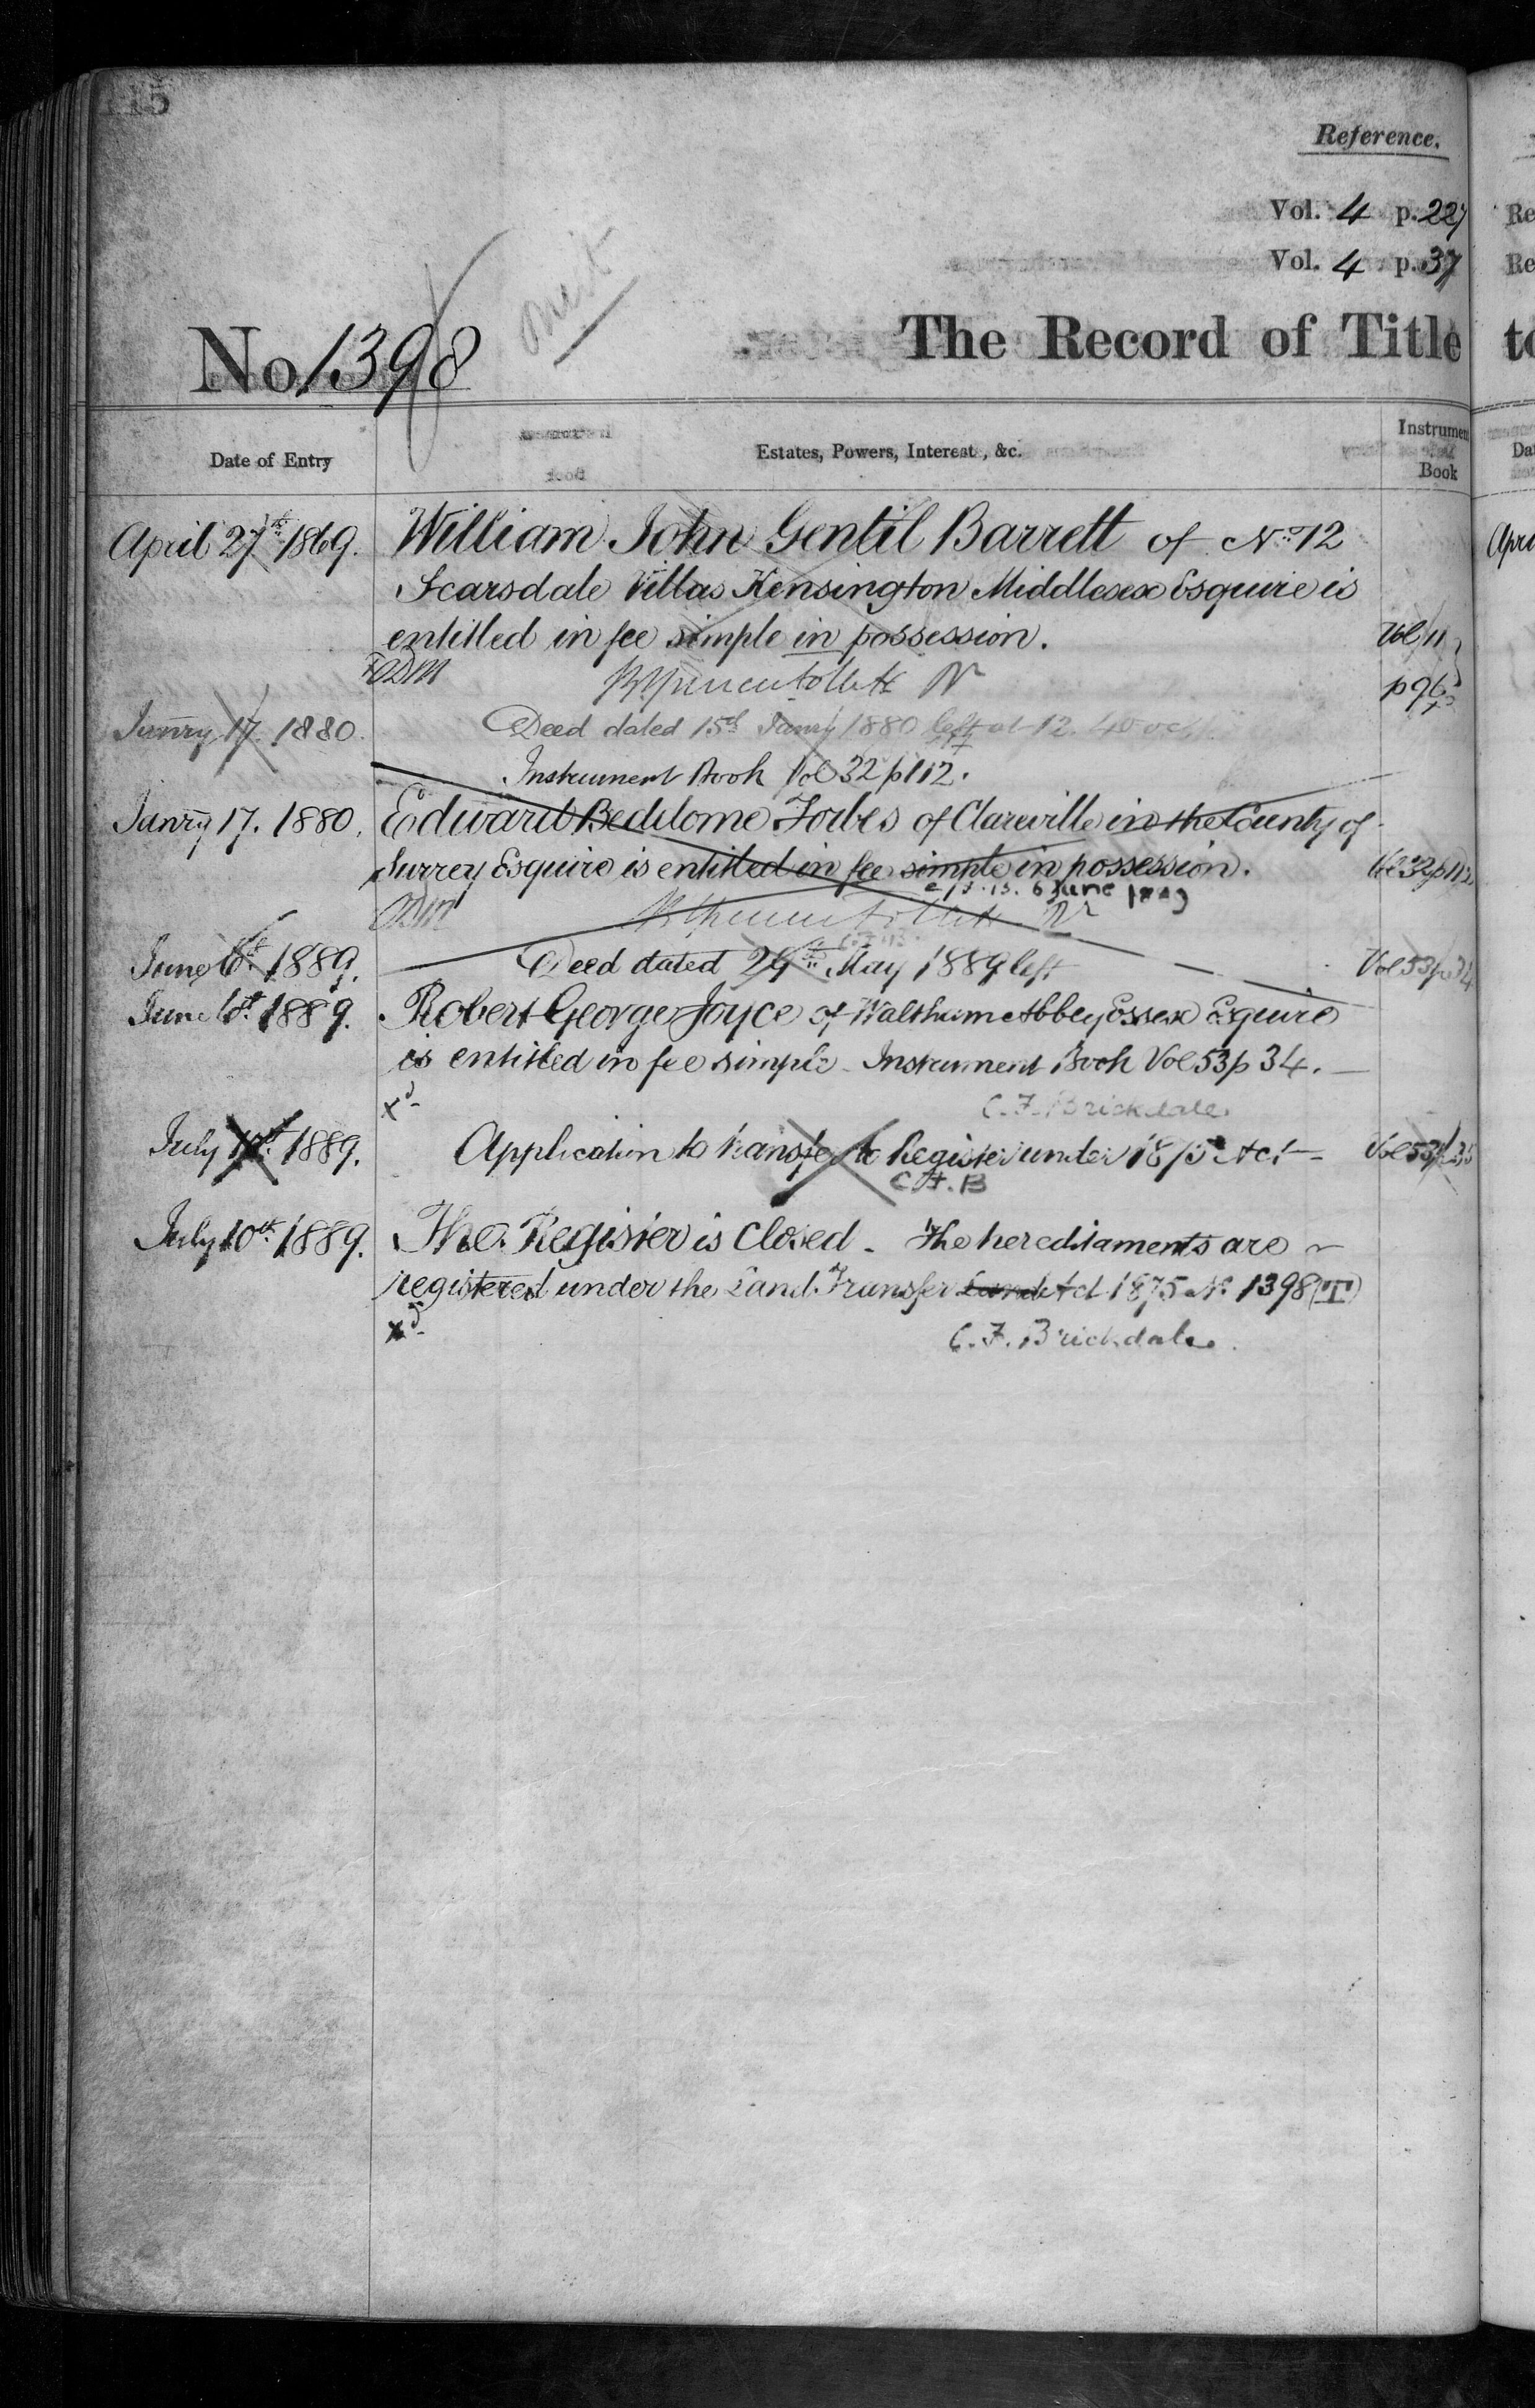 115
Reference.
Vol. 4 p. 227
Vol. 4 p. 37
omit
No 1398
The Record of Title
Date of Entry
Estates, Powers, Interest, &c.
Instrumen
Book
April 27th 1869. William John Gentil Barrett of No 12
Scarsdale Villas Kensington Middlesex Esquire is
entitled in fee simple in possession. Vol 11
p 96
Janry 17. 1880. Deed dated 15th Janry 1880 left at 12.40
Instrument Book Vol 32 p 112.
Janry 17. 1880. Edward Beddome Forbes of Clareville in the County of
Surrey Esquire is entitled in fee simple in possession. Vol 32 p 112
C.F.B. 6 June 1889
June 6th 1889. Deed dated 29th May 1889 left Vol 53 p 34
June 6th 1889. Robert George Joyce of Waltham Abbey Essex Esquire
is entitled in fee simple - Instrument Book Vol 53 p 34.
xd
C.F. Brickdale
July 1889. Application to transfer to Register under 1875 Act Vol 53 p 35
C.F.B
July 10th 1889. The Register is Closed. The hereditaments are
registered under the Land Transfer Land Act 1875 No 1398 (T)
xd
C.F. Brickdale.
Re
Re
to
Da
Apri